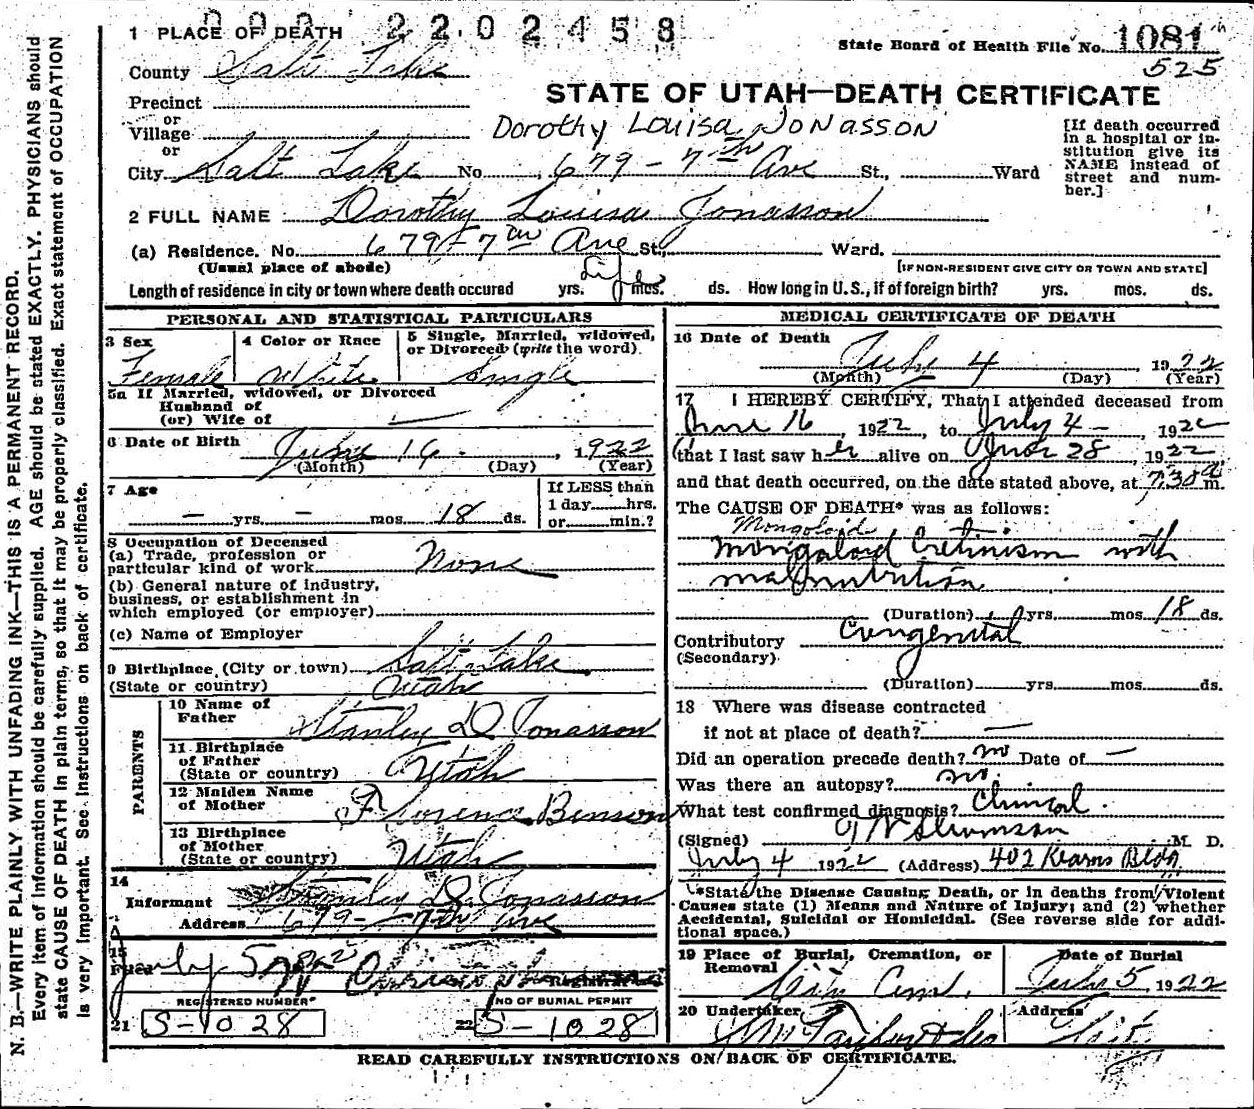 000 2202458
1 PLACE OF DEATH
State Board of Health File No. 1081
525
County Salt Lake
STATE OF UTAH—DEATH CERTIFICATE
Precinct
or
Village
or
Dorothy Louisa Jonasson
[If death occurred in a hospital or institution give its NAME instead of street and number.]
City Salt Lake No. 679-7th Ave St., Ward
2 FULL NAME Dorothy Louisa Jonasson
(a) Residence. No. 679-7th Ave St., Ward.
(Usual place of abode)
[IF NON-RESIDENT GIVE CITY OR TOWN AND STATE]
Length of residence in city or town where death occured yrs. Life mos. ds. How long in U.S., if of foreign birth? yrs. mos. ds.
PERSONAL AND STATISTICAL PARTICULARS
3 Sex
Female
4 Color or Race
White
5 Single, Married, widowed, or Divorced (write the word).
Single
5a If Married, widowed, or Divorced
Husband of
(or) Wife of —
6 Date of Birth June 16, 1922
(Month) (Day) (Year)
7 Age
— yrs. — mos. 18 ds.
If LESS than
1 day hrs.
or min.?
8 Occupation of Deceased
(a) Trade, profession or
particular kind of work None
(b) General nature of industry,
business, or establishment in
which employed (or employer)
(c) Name of Employer
9 Birthplace (City or town) Salt Lake
(State or country) Utah
PARENTS
10 Name of
Father Stanley D Jonasson
11 Birthplace
of Father
(State or country) Utah
12 Maiden Name
of Mother Florence Benson
13 Birthplace
of Mother
(State or country) Utah
14
Informant Stanley D. Jonasson
Address 679-7th Ave
15
Filed July 5
Registrar
REGISTERED NUMBER
21 S-1028
NO OF BURIAL PERMIT
22 S-1028
MEDICAL CERTIFICATE OF DEATH
16 Date of Death
July 4 1922
(Month) (Day) (Year)
17 I HEREBY CERTIFY, That I attended deceased from
June 16, 1922, to July 4, 1922
that I last saw her alive on June 28, 1922
and that death occurred, on the date stated above, at 7:30 a m.
The CAUSE OF DEATH* was as follows:
Mongoloid
Mongoloid Cretinism with
malnutrition
(Duration) yrs. mos. 18 ds.
Contributory Congenital
(Secondary)
(Duration) yrs. mos. ds.
18 Where was disease contracted
if not at place of death? —
Did an operation precede death? no Date of —
Was there an autopsy? no.
What test confirmed diagnosis? Clinical.
(Signed) M. D.
July 4 1922 (Address) 402 Kearns Bldg
*State the Disease Causing Death, or in deaths from Violent
Causes state (1) Means and Nature of Injury; and (2) whether
Accidental, Suicidal or Homicidal. (See reverse side for addi-
tional space.)
19 Place of Burial, Cremation, or
Removal
City Cem.
Date of Burial
July 5, 1922
20 Undertaker
Address
City
READ CAREFULLY INSTRUCTIONS ON BACK OF CERTIFICATE.
N. B.—WRITE PLAINLY WITH UNFADING INK—THIS IS A PERMANENT RECORD.
Every item of information should be carefully supplied. AGE should be stated EXACTLY. PHYSICIANS should
state CAUSE OF DEATH in plain terms, so that it may be properly classified. Exact statement of OCCUPATION
is very important. See instructions on back of certificate.